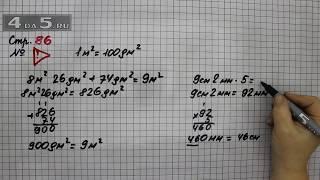 4DA5.RU
Стр. 86
№ 1
1 м² = 100 дм²
8 м² 26 дм² + 74 дм² = 9 м²
8 м² 26 дм² = 826 дм²
+ 826
74
900
900 дм² = 9 м²
9 см 2 мм · 5 =
9 см 2 мм = 92 мм
× 92
5
460
460 мм = 46 см